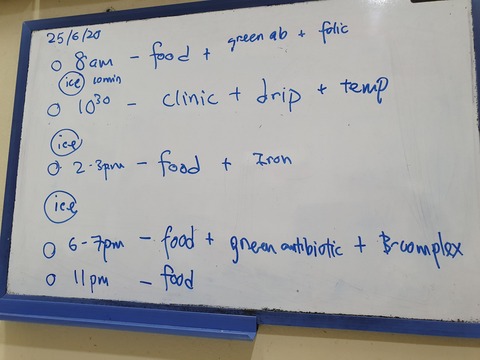 25/6/20
8am - food + green ab + folic
ice 10min
10³⁰ - clinic + drip + temp
ice
2-3pm - food + Iron
ice
6-7pm - food + green antibiotic + B-complex
11pm - food